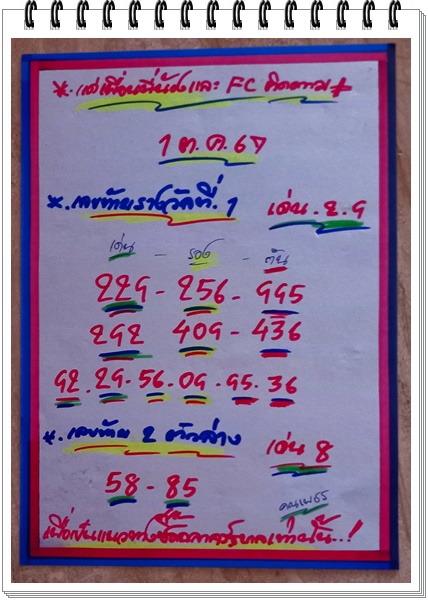 *. แด่เพื่อนพี่น้องและ FC ติดตาม #
1 ต.ค. 67
*. เลขท้ายรางวัลที่. 1 เด่น. 2. 9
เด่น - รอง - ตัน
229 - 256 - 995
292 409 - 436
92. 29. 56. 09. 95. 36
*. เลขท้าย 2 ตัวล่าง เด่น 8
58 - 85
เพื่อเป็นแนวทางซื้อสลากรัฐบาลเท่านั้น..!